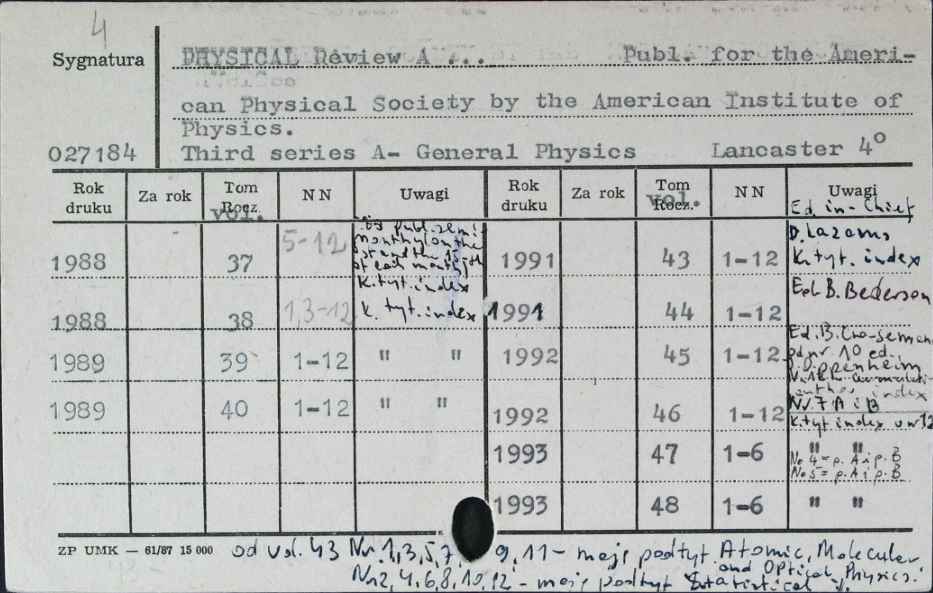 4
Sygnatura PHYSICAL Review A ... Publ. for the Ameri-
can Physical Society by the American Institute of
Physics.
027184 Third series A- General Physics Lancaster 4°
Rok druku Za rok Tom Rocz. vol. N N Uwagi Rok druku Za rok Tom Rocz. vol. N N Uwagi
Ed. in-Chief
1988 37 5-12 publ. semi-
monthly on the
1st and the 15th
of each month
K. tyt. index
1991 43 1-12 D. Lazarus
K. tyt. index
1988 38 1,3-12 K. tyt. index 1991 44 1-12 Ed. B. Bederson
1989 39 1-12 " " 1992 45 1-12 Ed. B.
od nr. 10 ed.
Oppenheim
index
1989 40 1-12 " " 1992 46 1-12 Nr. 7 A i B
K. tyt index w nr 12
1993 47 1-6 " "
No 4 = p. A i p. B
No 5 = p. A i p. B
1993 48 1-6 " "
ZP UMK — 61/87 15 000 od vol. 43 Nr. 1,3,5,7 9,11- mają podtyt Atomic, Molecular
and Optical Physics.
Nr 2,4,6,8,10,12 - mają podtyt Statistical